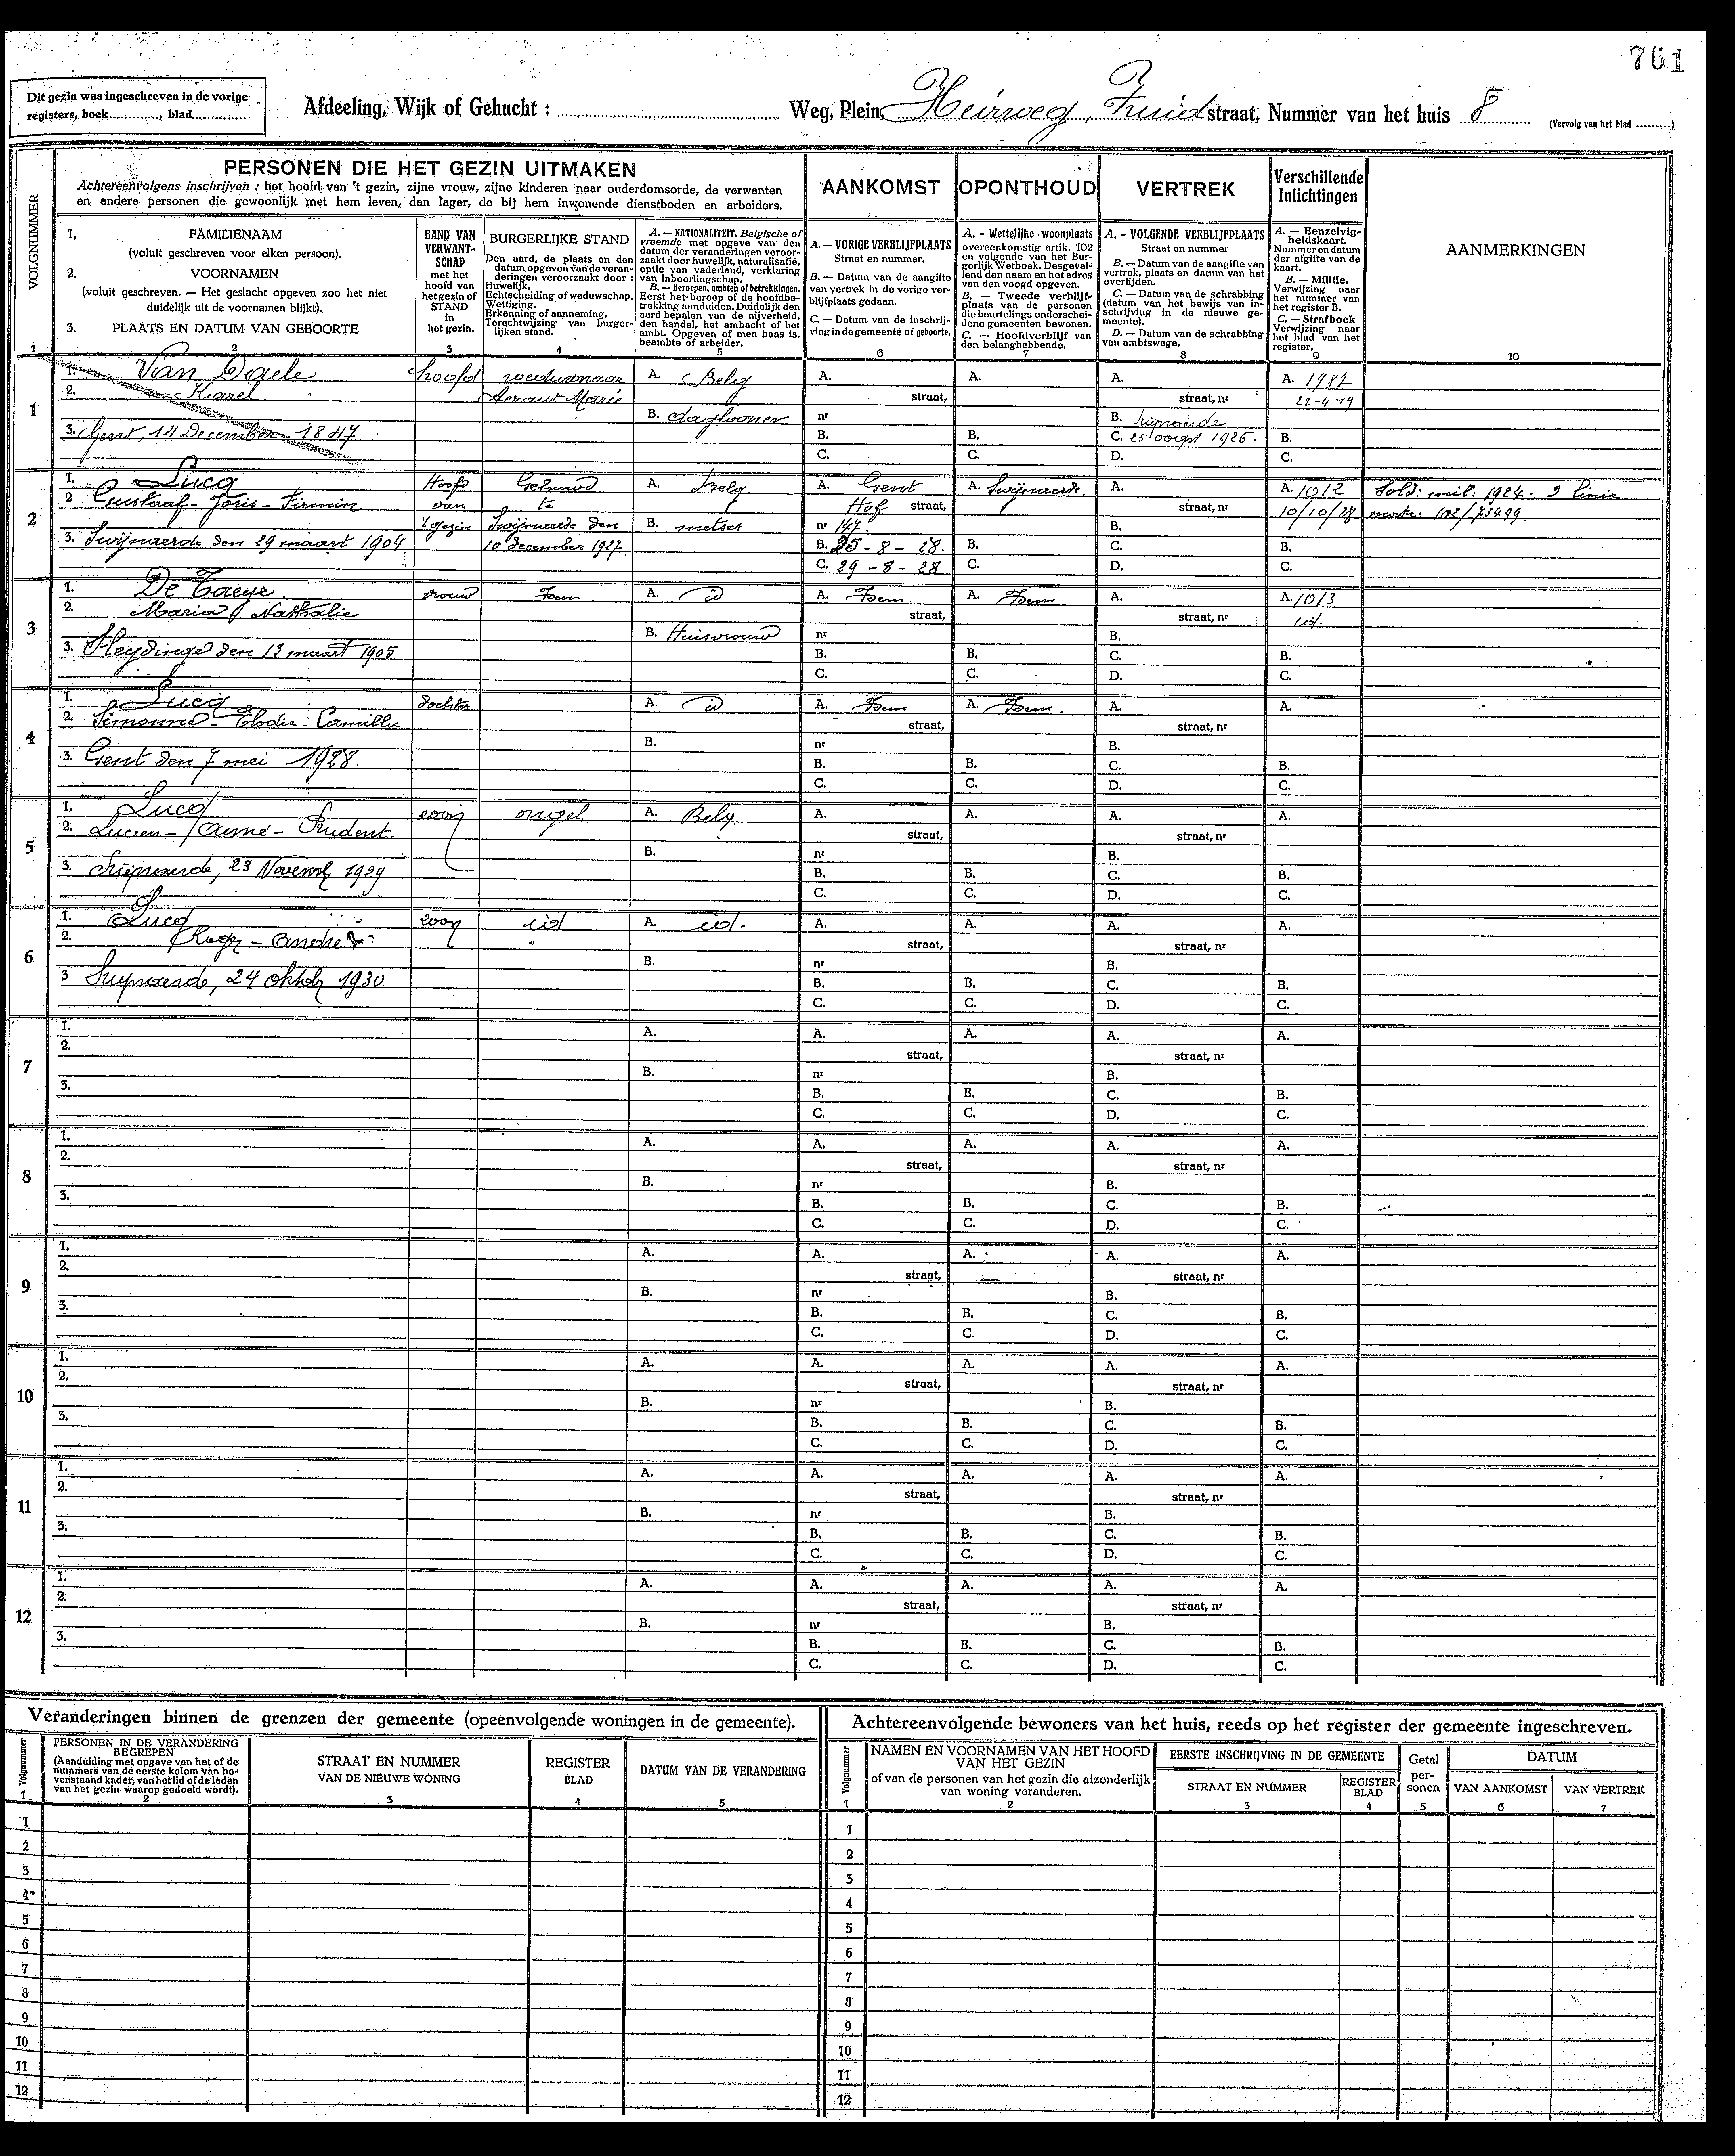 761
Dit gezin was ingeschreven in de vorige
registers, boek............, blad..............
Afdeeling, Wijk of Gehucht : ............ Weg, Plein, Heirweg, Zuid straat, Nummer van het huis 8 (Vervolg van het blad ..........)
VOLGNUMMER
PERSONEN DIE HET GEZIN UITMAKEN
Achtereenvolgens inschrijven : het hoofd van 't gezin, zijne vrouw, zijne kinderen naar ouderdomsorde, de verwanten
en andere personen die gewoonlijk met hem leven, dan lager, de bij hem inwonende dienstboden en arbeiders.
AANKOMST
OPONTHOUD
VERTREK
Verschillende
Inlichtingen
AANMERKINGEN
1. FAMILIENAAM
(voluit geschreven voor elken persoon).
2. VOORNAMEN
(voluit geschreven. — Het geslacht opgeven zoo het niet
duidelijk uit de voornamen blijkt).
3. PLAATS EN DATUM VAN GEBOORTE
BAND VAN
VERWANT-
SCHAP
met het
hoofd van
het gezin of
STAND
in
het gezin.
BURGERLIJKE STAND
Den aard, de plaats en den
datum opgeven van de veran-
deringen veroorzaakt door :
Huwelijk.
Echtscheiding of weduwschap.
Wettiging.
Erkenning of aanneming.
Terechtwijzing van burger-
lijken stand.
A. — NATIONALITEIT. Belgische of
vreemde met opgave van den
datum der veranderingen veroor-
zaakt door huwelijk, naturalisatie,
optie van vaderland, verklaring
van inboorlingschap.
B. — Beroepen, ambten of betrekkingen.
Eerst het beroep of de hoofdbe-
trekking aanduiden. Duidelijk den
aard bepalen van de nijverheid,
den handel, het ambacht of het
ambt. Opgeven of men baas is,
beambte of arbeider.
A. — VORIGE VERBLIJFPLAATS
Straat en nummer.
B. — Datum van de aangifte
van vertrek in de vorige ver-
blijfplaats gedaan.
C. — Datum van de inschrij-
ving in de gemeente of geboorte.
A. - Wettelijke woonplaats
overeenkomstig artik. 102
en volgende van het Bur-
gerlijk Wetboek. Desgeval-
lend den naam en het adres
van den voogd opgeven.
B. — Tweede verblijf-
plaats van de personen
die beurtelings onderschei-
dene gemeenten bewonen.
C. — Hoofdverblijf van
den belanghebbende.
A. - VOLGENDE VERBLIJFPLAATS
Straat en nummer
B. — Datum van de aangifte van
vertrek, plaats en datum van het
overlijden.
C. — Datum van de schrabbing
(datum van het bewijs van in-
schrijving in de nieuwe ge-
meente).
D. — Datum van de schrabbing
van ambtswege.
A. — Eenzelvig-
heidskaart.
Nummer en datum
der afgifte van de
kaart.
B. — Militie.
Verwijzing naar
het nummer van
het register B.
C. — Strafboek
Verwijzing naar
het blad van het
register.
1 2 3 4 5 6 7 8 9 10
1
1. Van Daele hoofd weduwnaar A. Belg A. A. A. A. 1987
2. Karel Marie straat, straat, nr 22-4-19
B. daglooner nr B.
3. Gent, 14 December 1847 B. B. C. 25 oogst 1926. B.
C. C. D. C.
2
1. Lucq Hoofd Gehuwd A. Belg A. Gent A. Swijnaerde. A. A. 1012 Sold: mil: 1924. 2 linie
2 Gustaaf-Joris-Firmin van te Hof straat, straat, nr 10/10/28 matr: 102/73499.
't gezin Swijnaerde den B. metser nr 147. B.
3. Swijnaerde den 29 maart 1904 10 december 1927. B. 25-8-28. B. C. B.
C. 29-8-28 C. D. C.
3
1. De Taeye. vrouw Idem. A. id A. Idem. A. Idem A. A. 1013
2. Maria Nathalie straat, straat, nr id.
B. Huisvrouw nr B.
3. Sleydinge den 13 maart 1905 B. B. C. B.
C. C. D. C.
4
1. Lucq dochter A. id A. Idem A. Idem. A. A.
2. Simonne-Elodie-Camilla straat, straat, nr
B. nr B.
3. Gent den 7 mei 1928. B. B. C. B.
C. C. D. C.
5
1. Lucq zoon ongeh. A. Belg. A. A. A. A.
2. Lucien-Aimé-Prudent. straat, straat, nr
B. nr B.
3. Swijnaerde, 23 Novemb 1929 B. B. C. B.
C. C. D. C.
6
1. Lucq zoon id A. id. A. A. A. A.
2. Roger-André straat, straat, nr
B. nr B.
3 Swijnaerde, 24 oktob 1930 B. B. C. B.
C. C. D. C.
7
1. A. A. A. A. A.
2. straat, straat, nr
B. nr B.
3. B. B. C. B.
C. C. D. C.
8
1. A. A. A. A. A.
2. straat, straat, nr
B. nr B.
3. B. B. C. B.
C. C. D. C.
9
1. A. A. A. A. A.
2. straat, straat, nr
B. nr B.
3. B. B. C. B.
C. C. D. C.
10
1. A. A. A. A. A.
2. straat, straat, nr
B. nr B.
3. B. B. C. B.
C. C. D. C.
11
1. A. A. A. A. A.
2. straat, straat, nr
B. nr B.
3. B. B. C. B.
C. C. D. C.
12
1. A. A. A. A. A.
2. straat, straat, nr
B. nr B.
3. B. B. C. B.
C. C. D. C.
Veranderingen binnen de grenzen der gemeente (opeenvolgende woningen in de gemeente).
Volgnummer
PERSONEN IN DE VERANDERING
BEGREPEN
(Aanduiding met opgave van het of de
nummers van de eerste kolom van bo-
venstaand kader, van het lid of de leden
van het gezin waarop gedoeld wordt).
STRAAT EN NUMMER
VAN DE NIEUWE WONING
REGISTER
BLAD
DATUM VAN DE VERANDERING
1 2 3 4 5
1
2
3
4
5
6
7
8
9
10
11
12
Achtereenvolgende bewoners van het huis, reeds op het register der gemeente ingeschreven.
Volgnummer
NAMEN EN VOORNAMEN VAN HET HOOFD
VAN HET GEZIN
of van de personen van het gezin die afzonderlijk
van woning veranderen.
EERSTE INSCHRIJVING IN DE GEMEENTE
STRAAT EN NUMMER
REGISTER
BLAD
Getal
per-
sonen
DATUM
VAN AANKOMST
VAN VERTREK
1 2 3 4 5 6 7
1
2
3
4
5
6
7
8
9
10
11
12